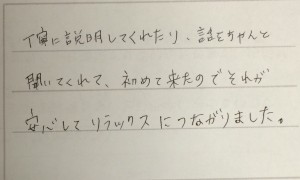 丁寧に説明してくれたり、話をちゃんと
聞いてくれて、初めて来たのでそれが
安心してリラックスにつながりました。